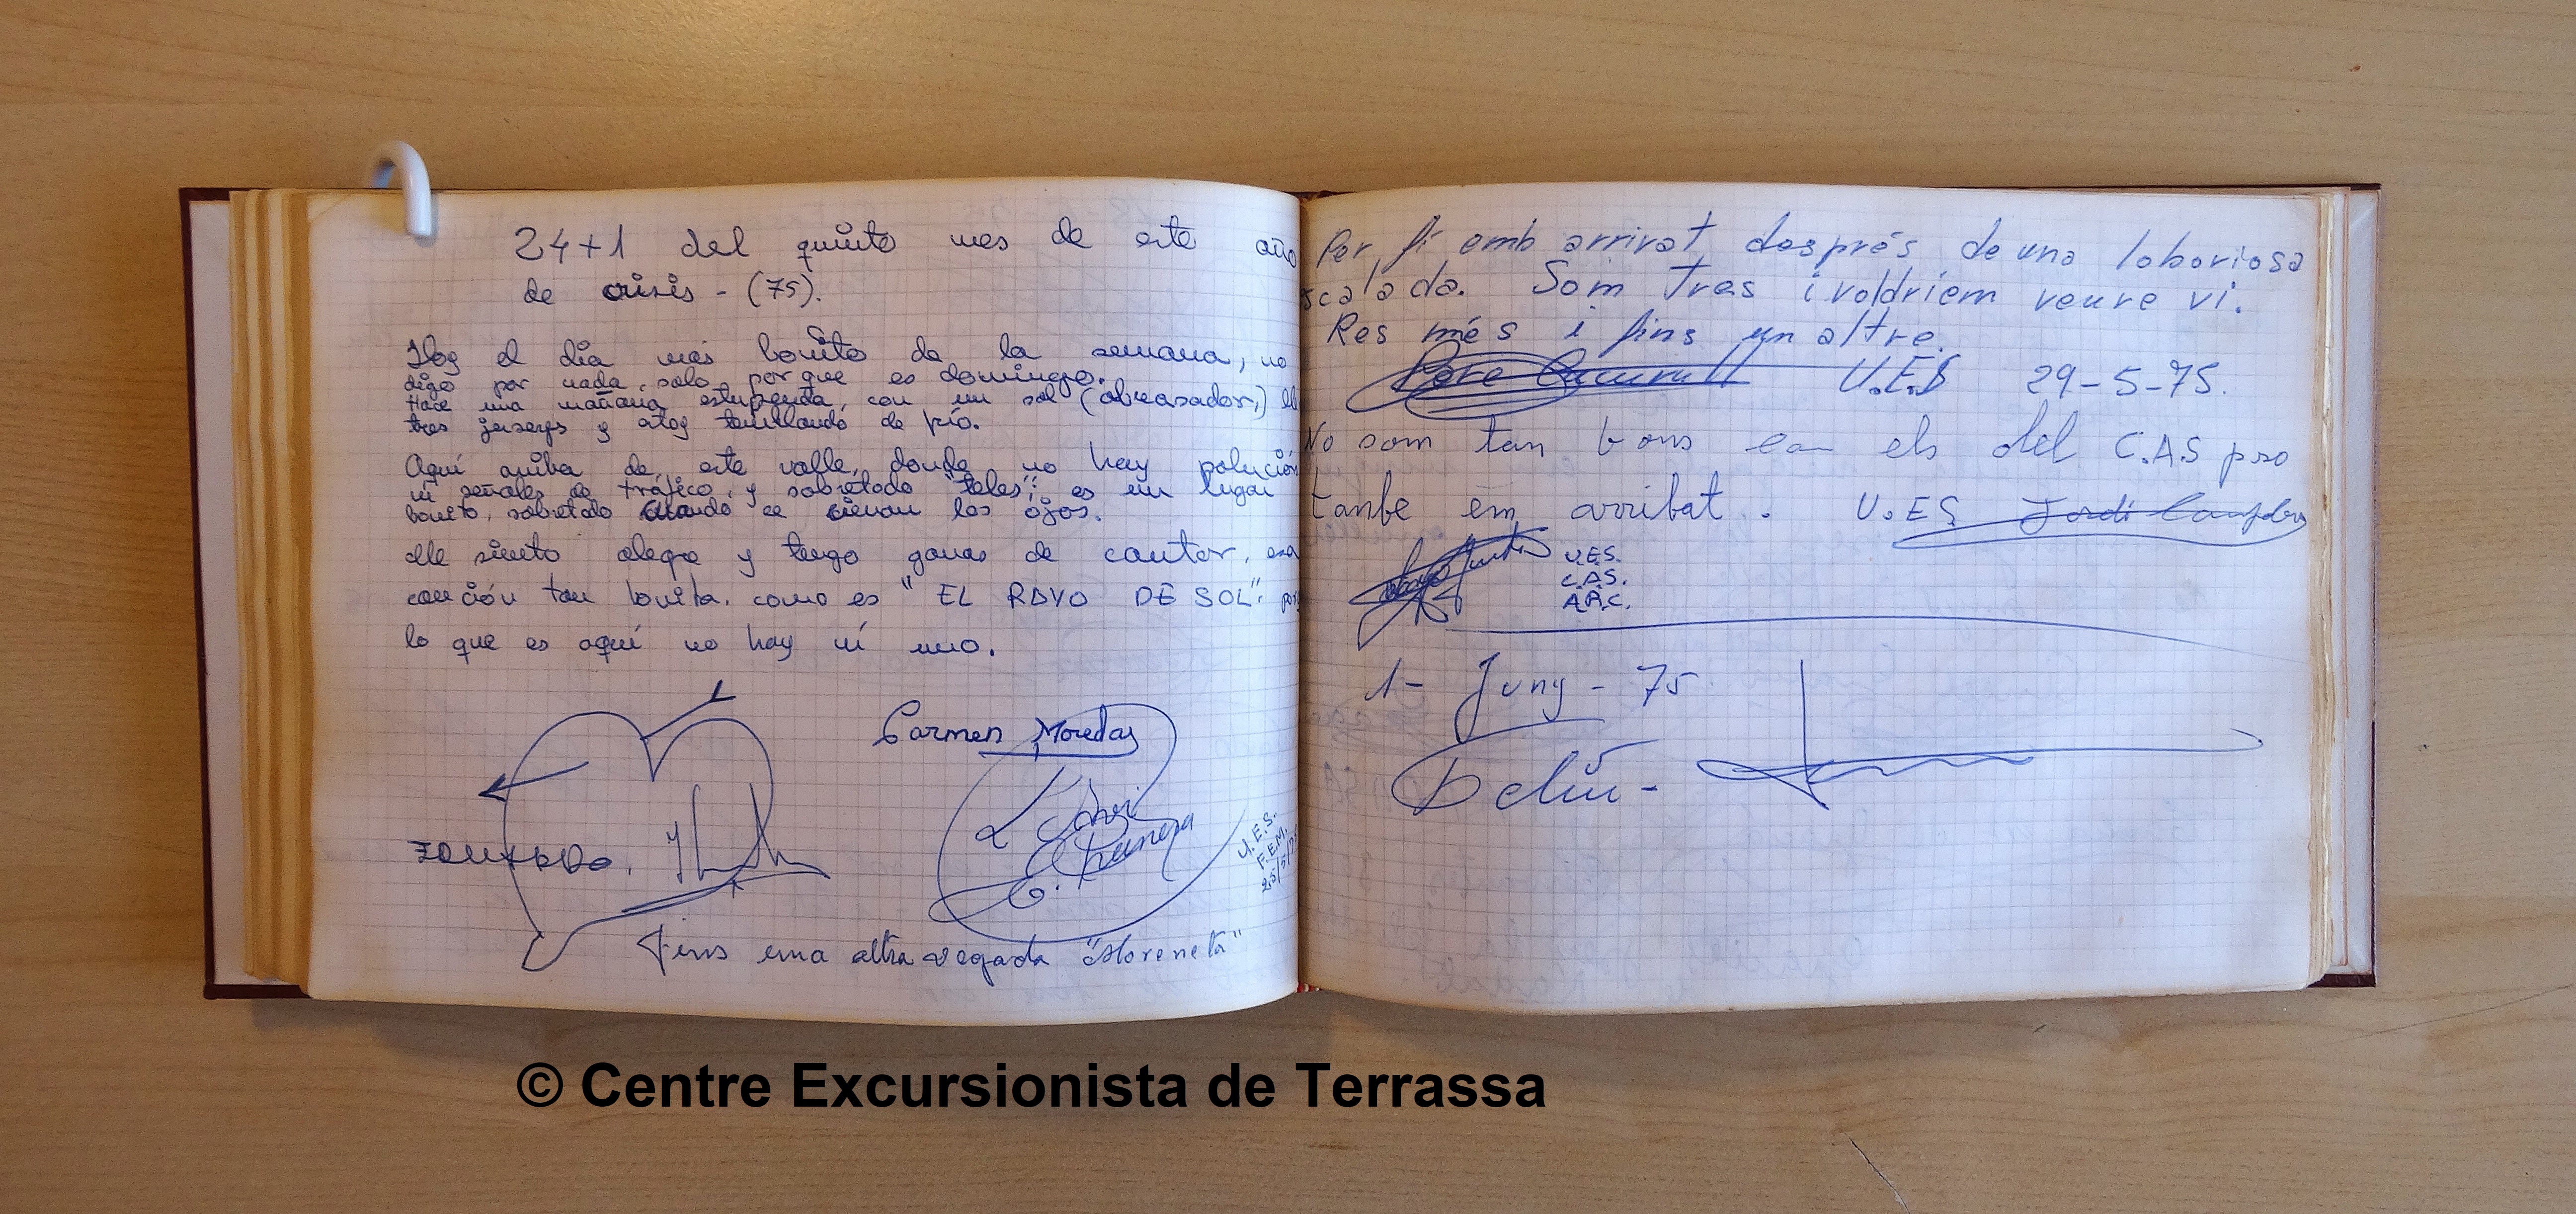 24+1 del quinto mes de este año
de crisis - (75).
Hoy el dia mas bonito de la semana, no
digo por nada, solo porque es domingo.
Hace una mañana estupenda, con un sol (abrasador,)
tres jerseys y estoy tiritando de frío.
Aquí arriba de este valle, donde no hay polución
ni señales de tráfico, y sobretodo "teles", es un lugar
bonito, sobretodo cuando se cierran los ojos.
Me siento alegre y tengo ganas de cantar, esa
canción tan bonita, como es "EL RAYO DE SOL".
lo que es aquí no hay ni uno.
Carmen Moredas
U.E.S.
F.E.M.
25/5/75
Fins una altra vegada "Moreneta"
Per fi emb arrivat després de una laboriosa
scalada. Som tres i voldriem veure vi.
Res més i fins un altre.
Pere U.E.S 29-5-75.
No som tan bons com els del C.A.S pro
tambe em arribat. U.ES Jordi
U.E.S.
C.A.S.
A.A.C.
1- Juny - 75
© Centre Excursionista de Terrassa